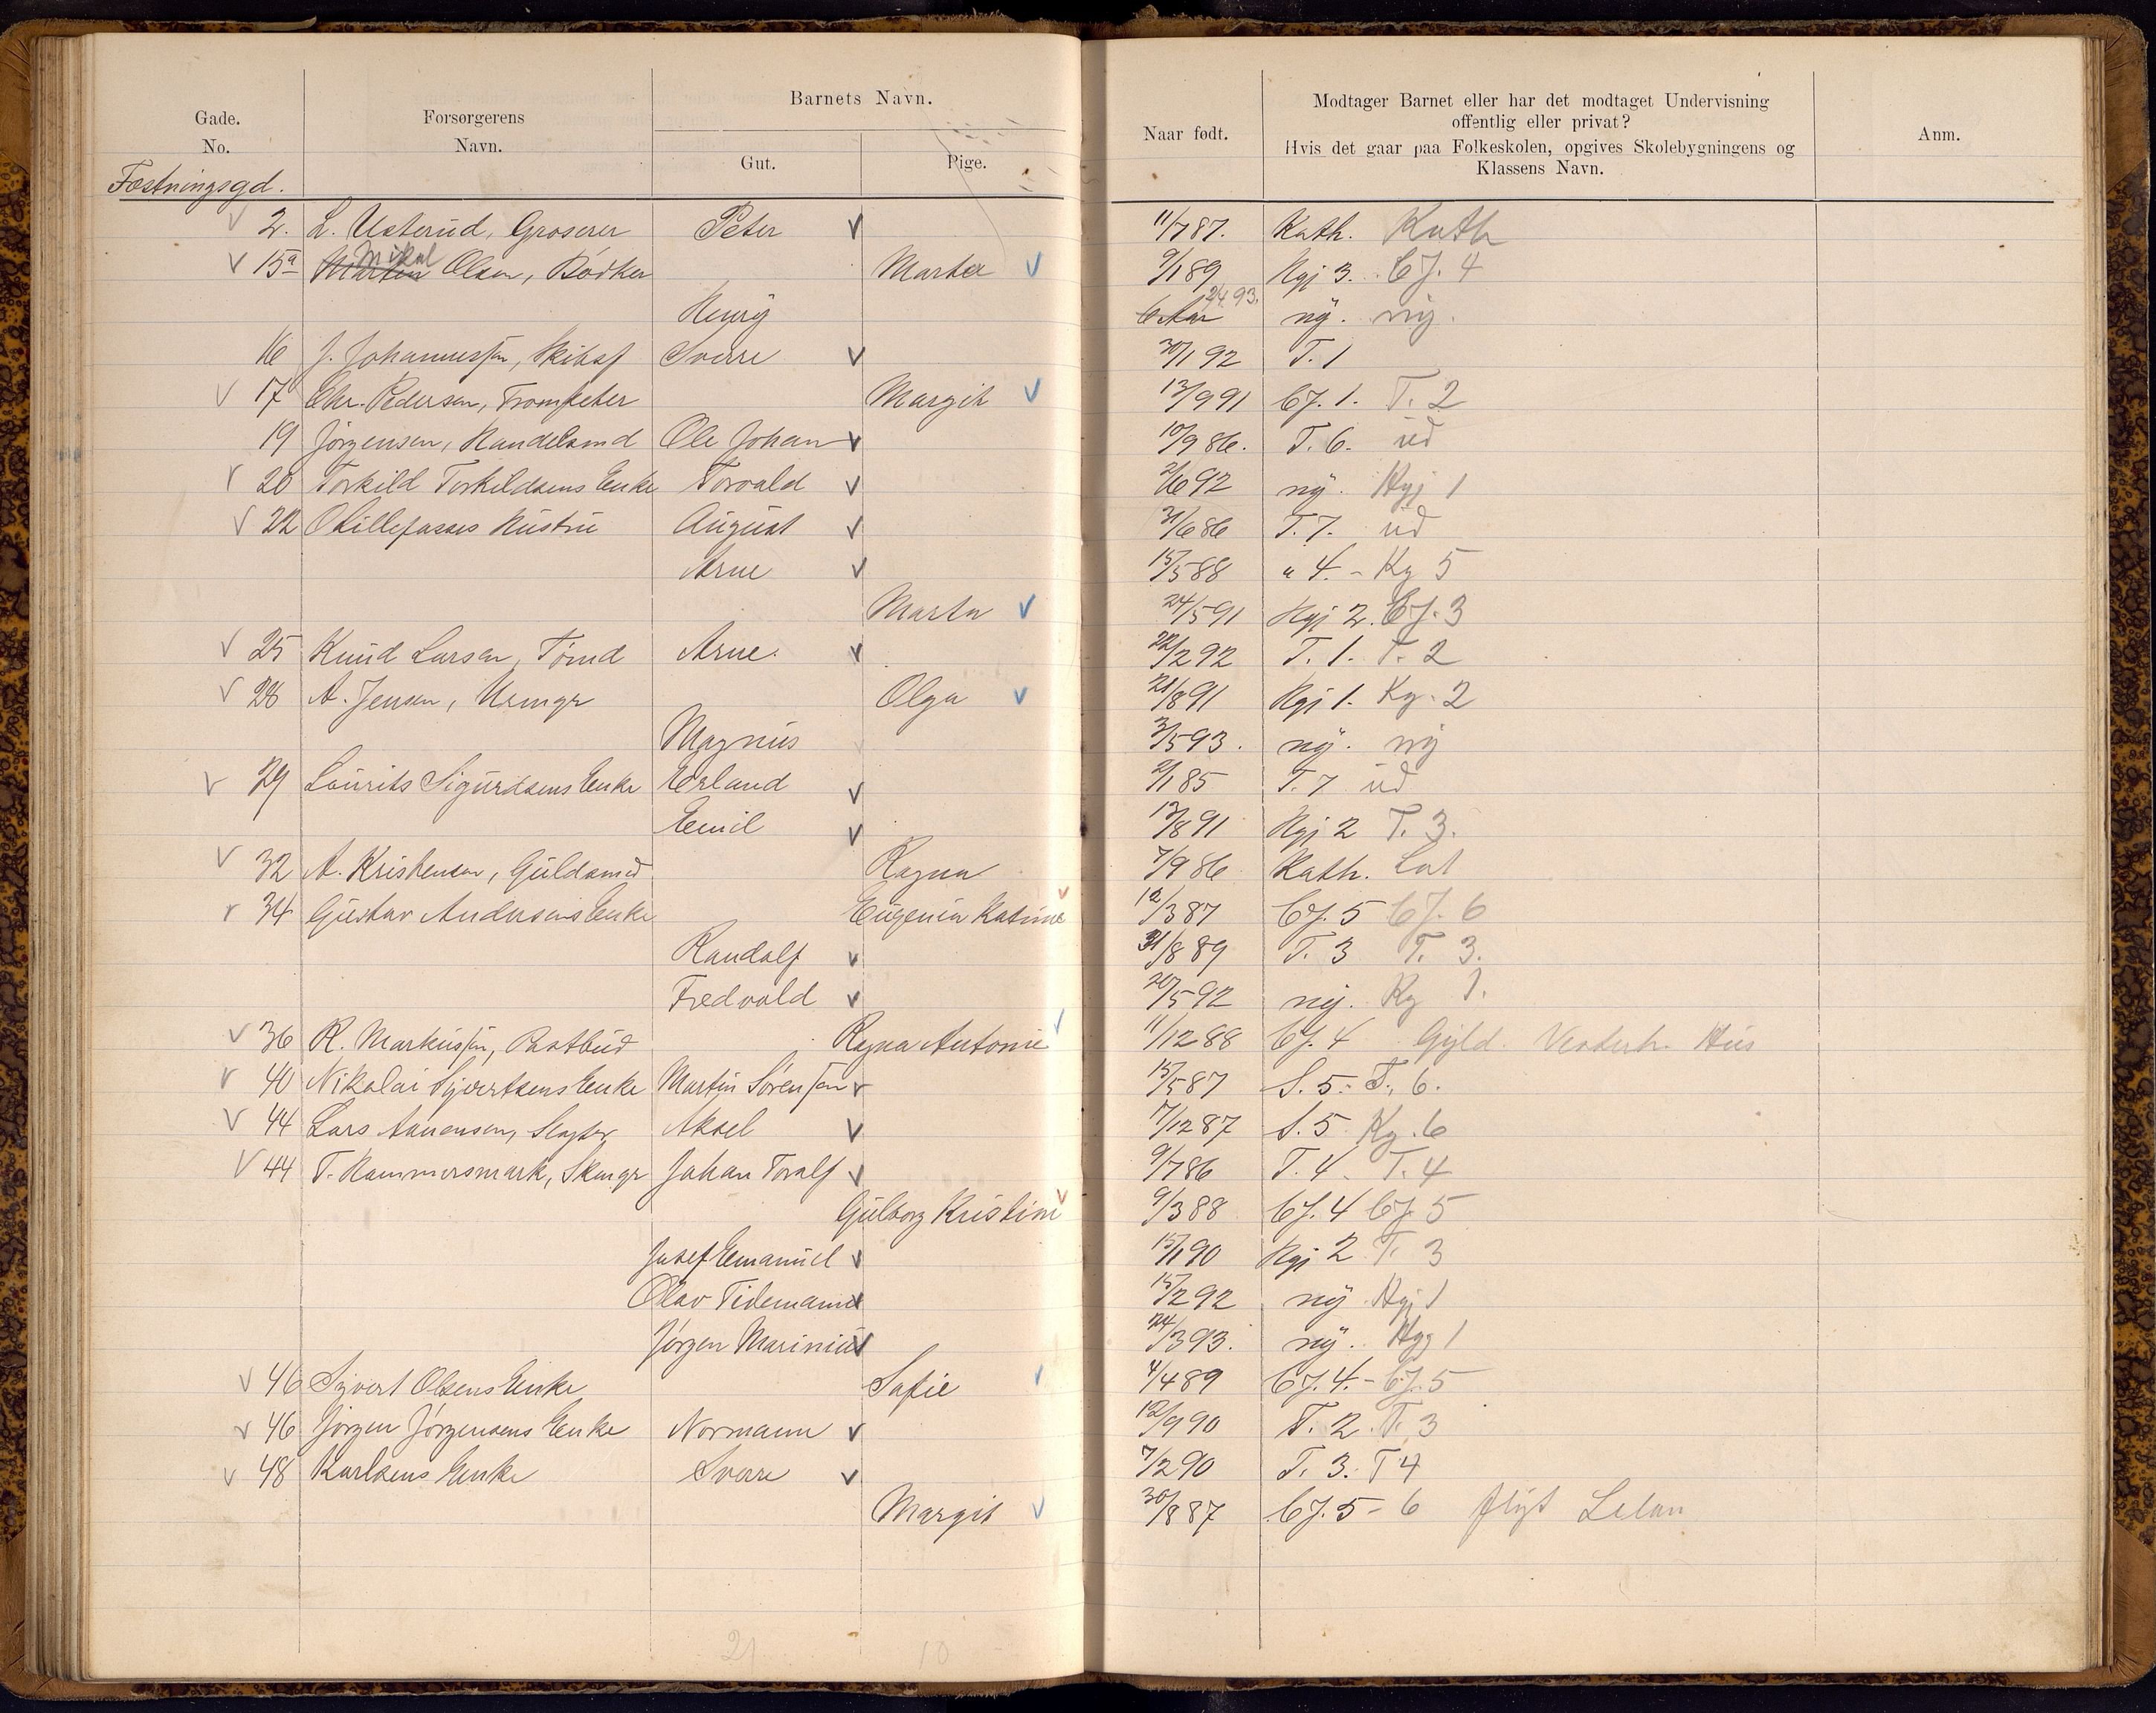 Barnets Navn.
Gade. Forsørgerens
No. Navn. Gut. Pige.
Naar født. Modtager Barnet eller har det modtaget Undervisning
offentlig eller privat?
Hvis det gaar paa Folkeskolen, opgives Skolebygningens og
Klassens Navn. Anm.
Fæstningsgd.
2. L. Usterud, Groserer Peter 11/7 87. Kath. Kath
15a Martin Mikal Olsen, Bødker Marta 9/1 89 Hgj 3. CJ. 4
Henry 6 Aar 2/4 93. ny. ny.
16 J. Johannessen, Skibsf Sverre 30/1 92 T. 1
17 Chr. Pedersen, Trompeter Margit 13/9 91 CJ. 1. T. 2
19 Jørgensen, Handelsmd Ole Johan 10/9 86. T. 6. ud
20 Torkild Torkildsens Enke Torvald 2/6 92 ny. Hgj 1
22 O Lillefosses Hustru August 31/6 86 T. 7. ud
Arne 15/5 88 " 4. - Kg 5
Marta 24/5 91 Hgj 2. CJ. 3
25 Knud Larsen, Tømd Arne. 22/2 92 T. 1. T. 2
28 A. Jensen, Urmgr Olga 21/8 91 Hgj 1. Kg. 2
Magnus 3/5 93. ny. ny
29 Lourits Sigurdsens Enke Erland 2/1 85 T. 7 ud
Emil 13/8 91 Hgj 2 T. 3.
32 A. Kristensen, Guldsmed Ragna 7/9 86 Kath. Lat
34 Gustav Andersens Enke Eugenia Katrine 12/3 87 CJ. 5 CJ. 6
Randolf 31/8 89 T. 3 T. 3.
Fredvald 20/5 92 ny. Kg 1.
36 R. Markussen, Postbud Ragna Antonie 11/12 88 CJ. 4 Gyld. Hus
40 Nikolai Syvertsens Enke Martin Sørensen 15/5 87 S. 5. T. 6.
44 Lars Aanensen, Slagter Aksel 7/12 87 S. 5 Kg. 6
44 T. Hammersmark, Skmgr Johan Toralf 9/7 86 T. 4 T. 4
Gulborg Kristine 9/3 88 CJ. 4 CJ. 5
Josef Emanuel 15/1 90 Hgj 2 T. 3
Olav Tidemand 15/2 92 ny Hgj 1
Jørgen Marinius 24/3 93. ny. Hgj 1
46 Syvert Olsens Enke Sofie 4/4 89 CJ. 4. - CJ. 5
46 Jørgen Jørgensens Enke Normann 12/9 90 T. 2. T. 3
48 Karlsens Enke Sverre 7/2 90 T. 3. T 4
Margit 30/8 87 CJ. 5 - 6 flyt
21 10